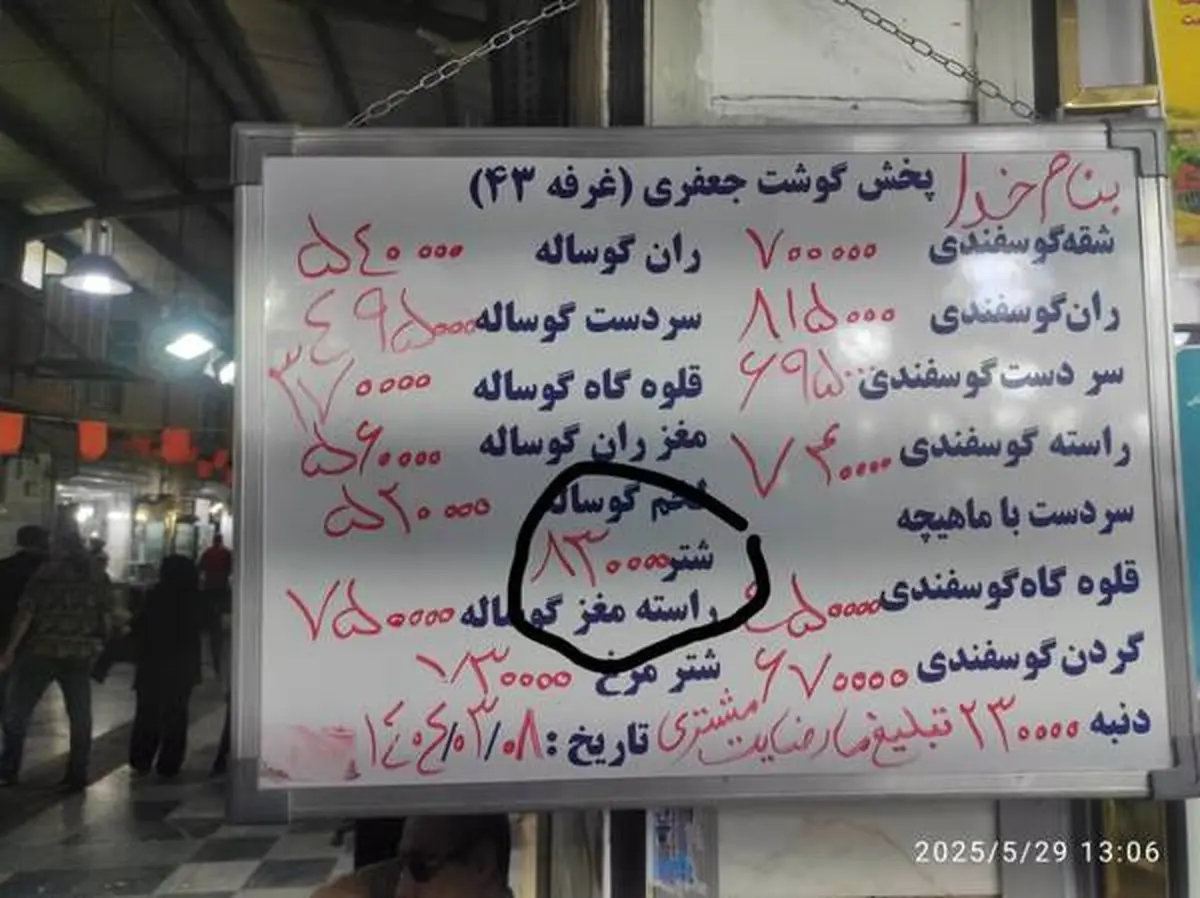 بنام خدا
پخش گوشت جعفری (غرفه ۴۳)
شقه گوسفندی ۷۰۰۰۰۰ ران گوساله ۵۴۰۰۰۰
ران گوسفندی ۸۱۵۰۰۰ سردست گوساله ۴۹۵۰۰۰
سر دست گوسفندی ۶۹۵۰۰۰ قلوه گاه گوساله ۳۷۰۰۰۰
راسته گوسفندی ۷۳۰۰۰۰ مغز ران گوساله ۵۶۰۰۰۰
سردست با ماهیچه لخم گوساله ۵۲۰۰۰۰
شتر ۸۳۰۰۰۰
قلوه گاه گوسفندی ۴۵۰۰۰۰ راسته مغز گوساله ۷۵۰۰۰۰
گردن گوسفندی ۶۷۰۰۰۰ شتر مرغ ۸۳۰۰۰۰
دنبه ۲۳۰۰۰۰ تبلیغ ما رضایت مشتری تاریخ : ۱۴۰۴/۰۳/۰۸
2025/5/29 13:06